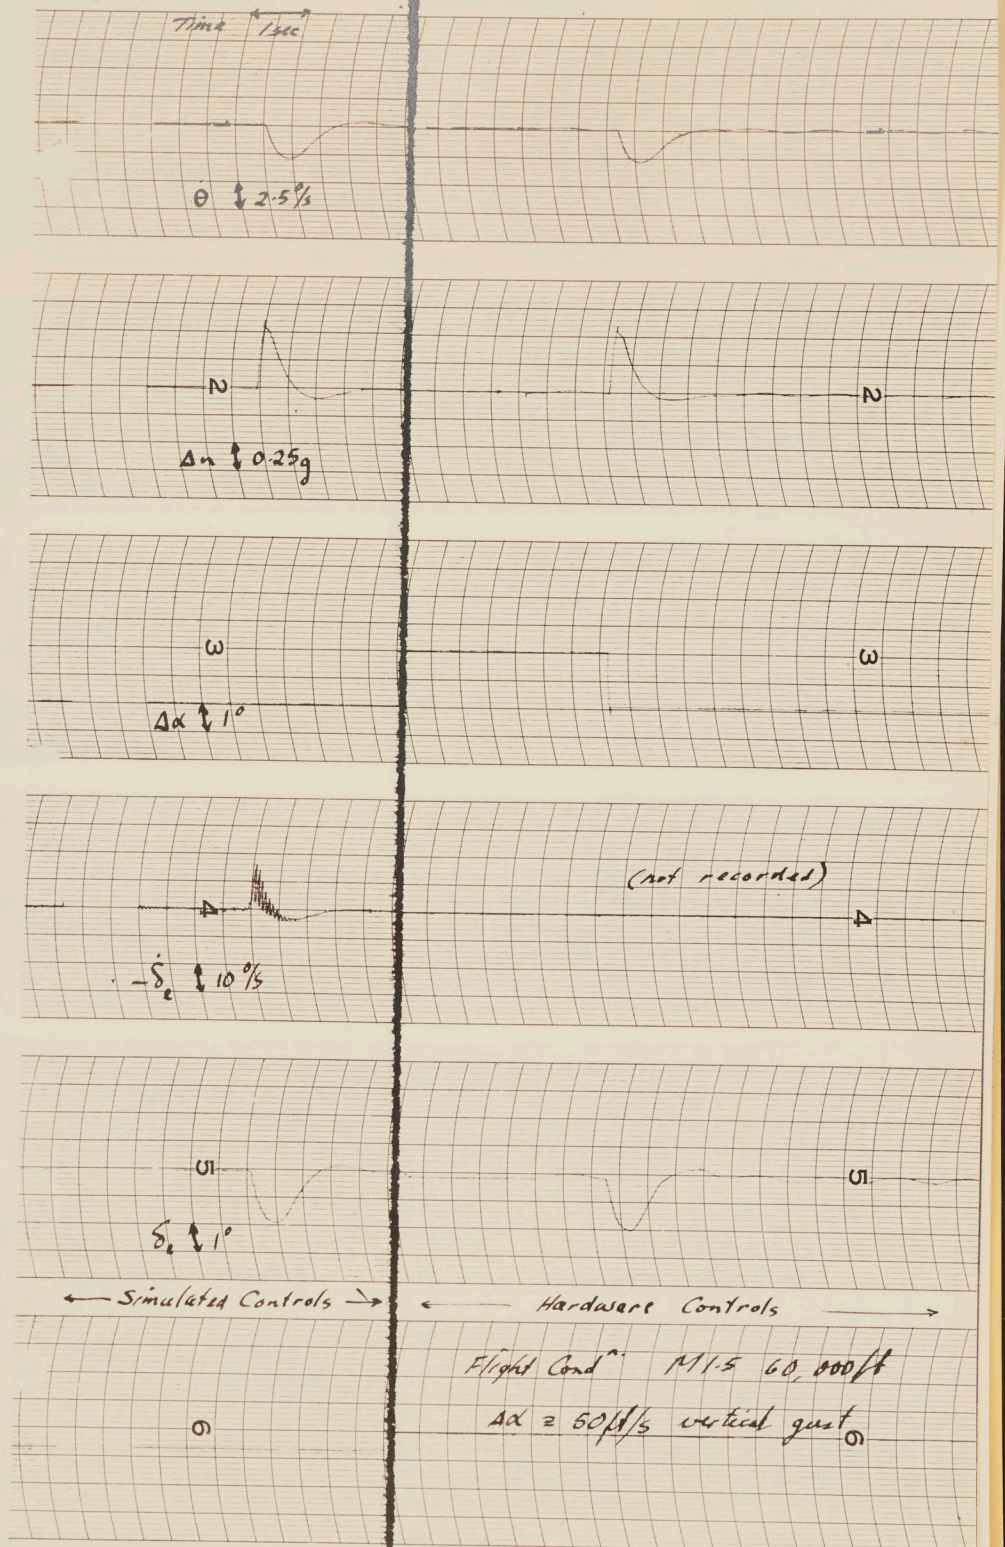 Time 1sec
θ̇ 2.5°/s
2 2
Δn 0.25g
3 3
Δα 1°
(not recorded)
4 4
-δ̇e 10°/s
5 5
δe 1°
← Simulated Controls → ← Hardware Controls →
Flight Condn. M1.5 60,000ft
Δα ≡ 50ft/s vertical gust
6 6